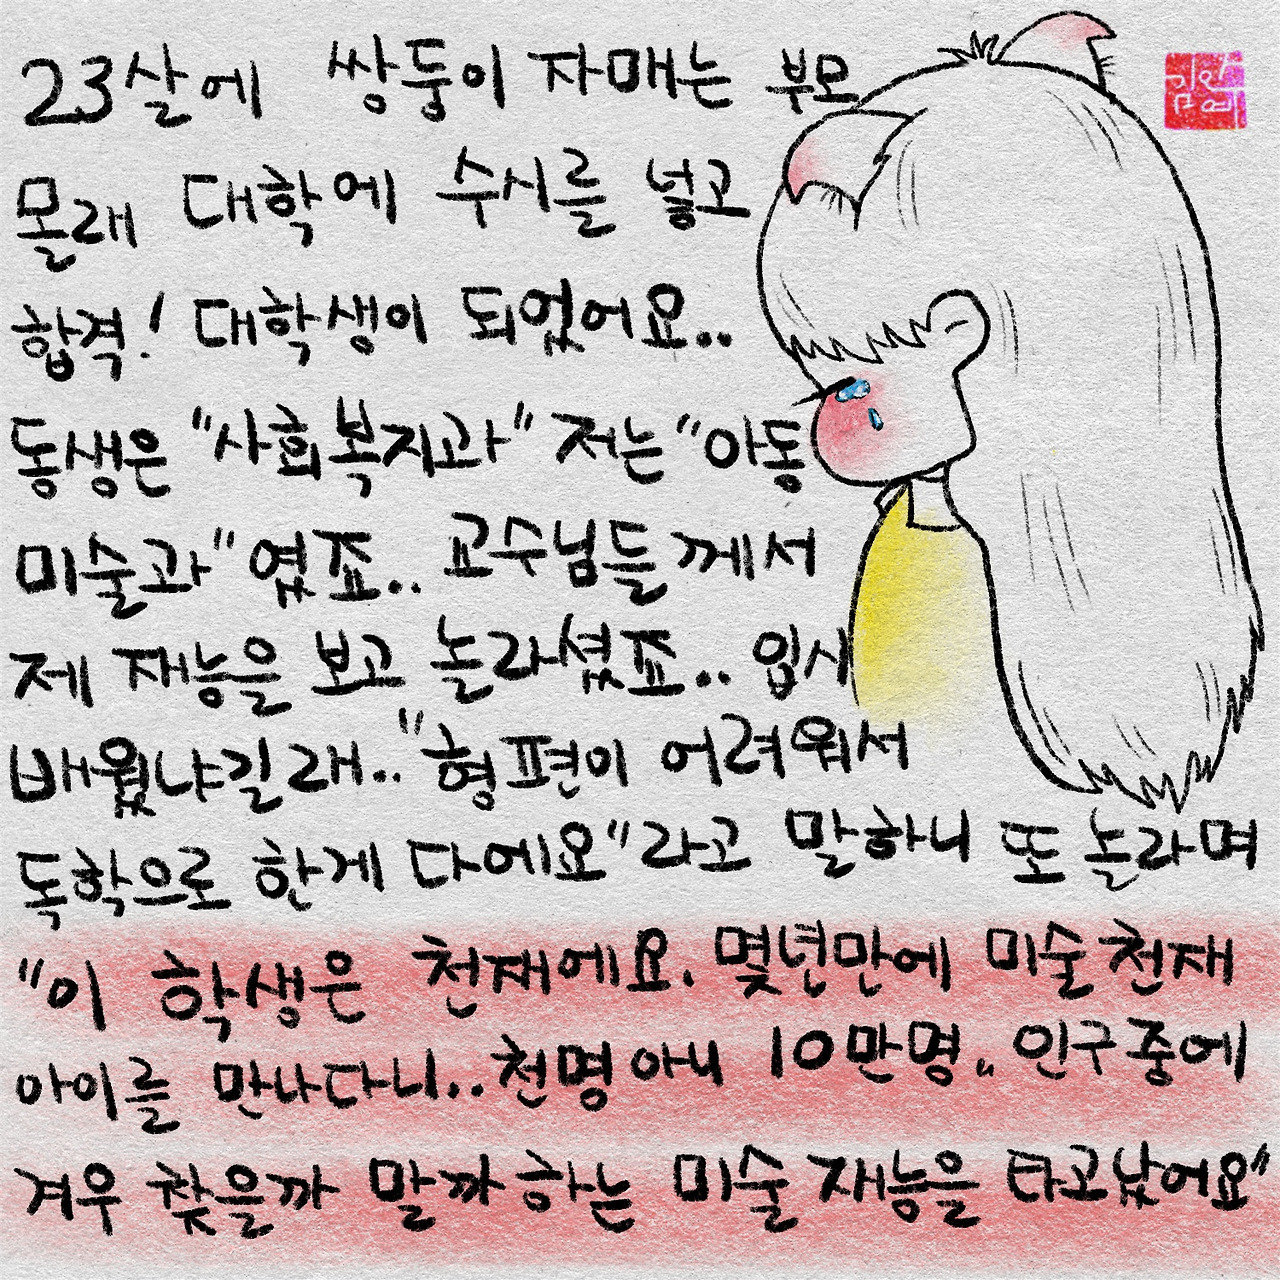 23살에 쌍둥이 자매는 부모
몰래 대학에 수시를 넣고
합격! 대학생이 되었어요..
동생은 "사회복지과" 저는 "아동
미술과" 였죠.. 교수님들께서
제 재능을 보고 놀라셨죠.. 입시
배웠냐길래.. "형편이 어려워서
독학으로 한게 다에요"라고 말하니 또 놀라며
"이 학생은 천재에요. 몇년만에 미술천재
아이를 만나다니.. 천명아니 10만명.. 인구중에
겨우 찾을까 말까하는 미술 재능을 타고났어요"